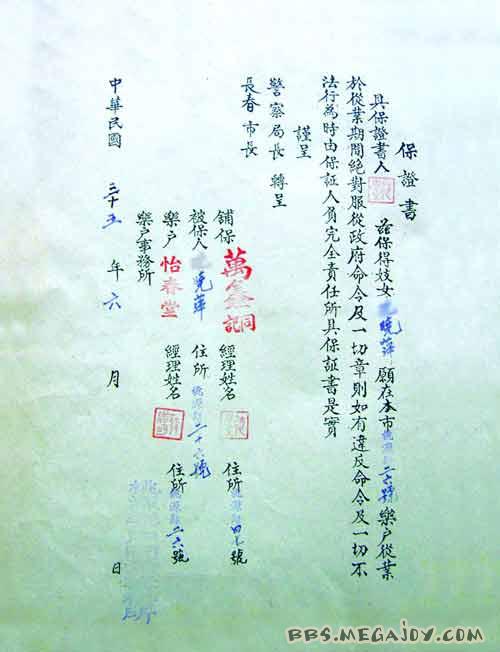 保證書
具保證書人 茲保得妓女 曉萍 願在本市桃源路二六號樂户從業
於從業期間絕對服從政府命令及一切章則如有違反命令及一切不
法行為時由保証人負完全責任所具保証書是實
謹呈
警察局長 轉呈
長春市長
舖保 萬鑫詞記 經理姓名 住所桃源路四七號
被保人 曉萍 住所 桃源路二十六號
樂户 怡春堂 經理姓名 住所桃源路二六號
樂户事務所
中華民國 三十五 年 六 月 日
BBS.MEGAJOY.COM